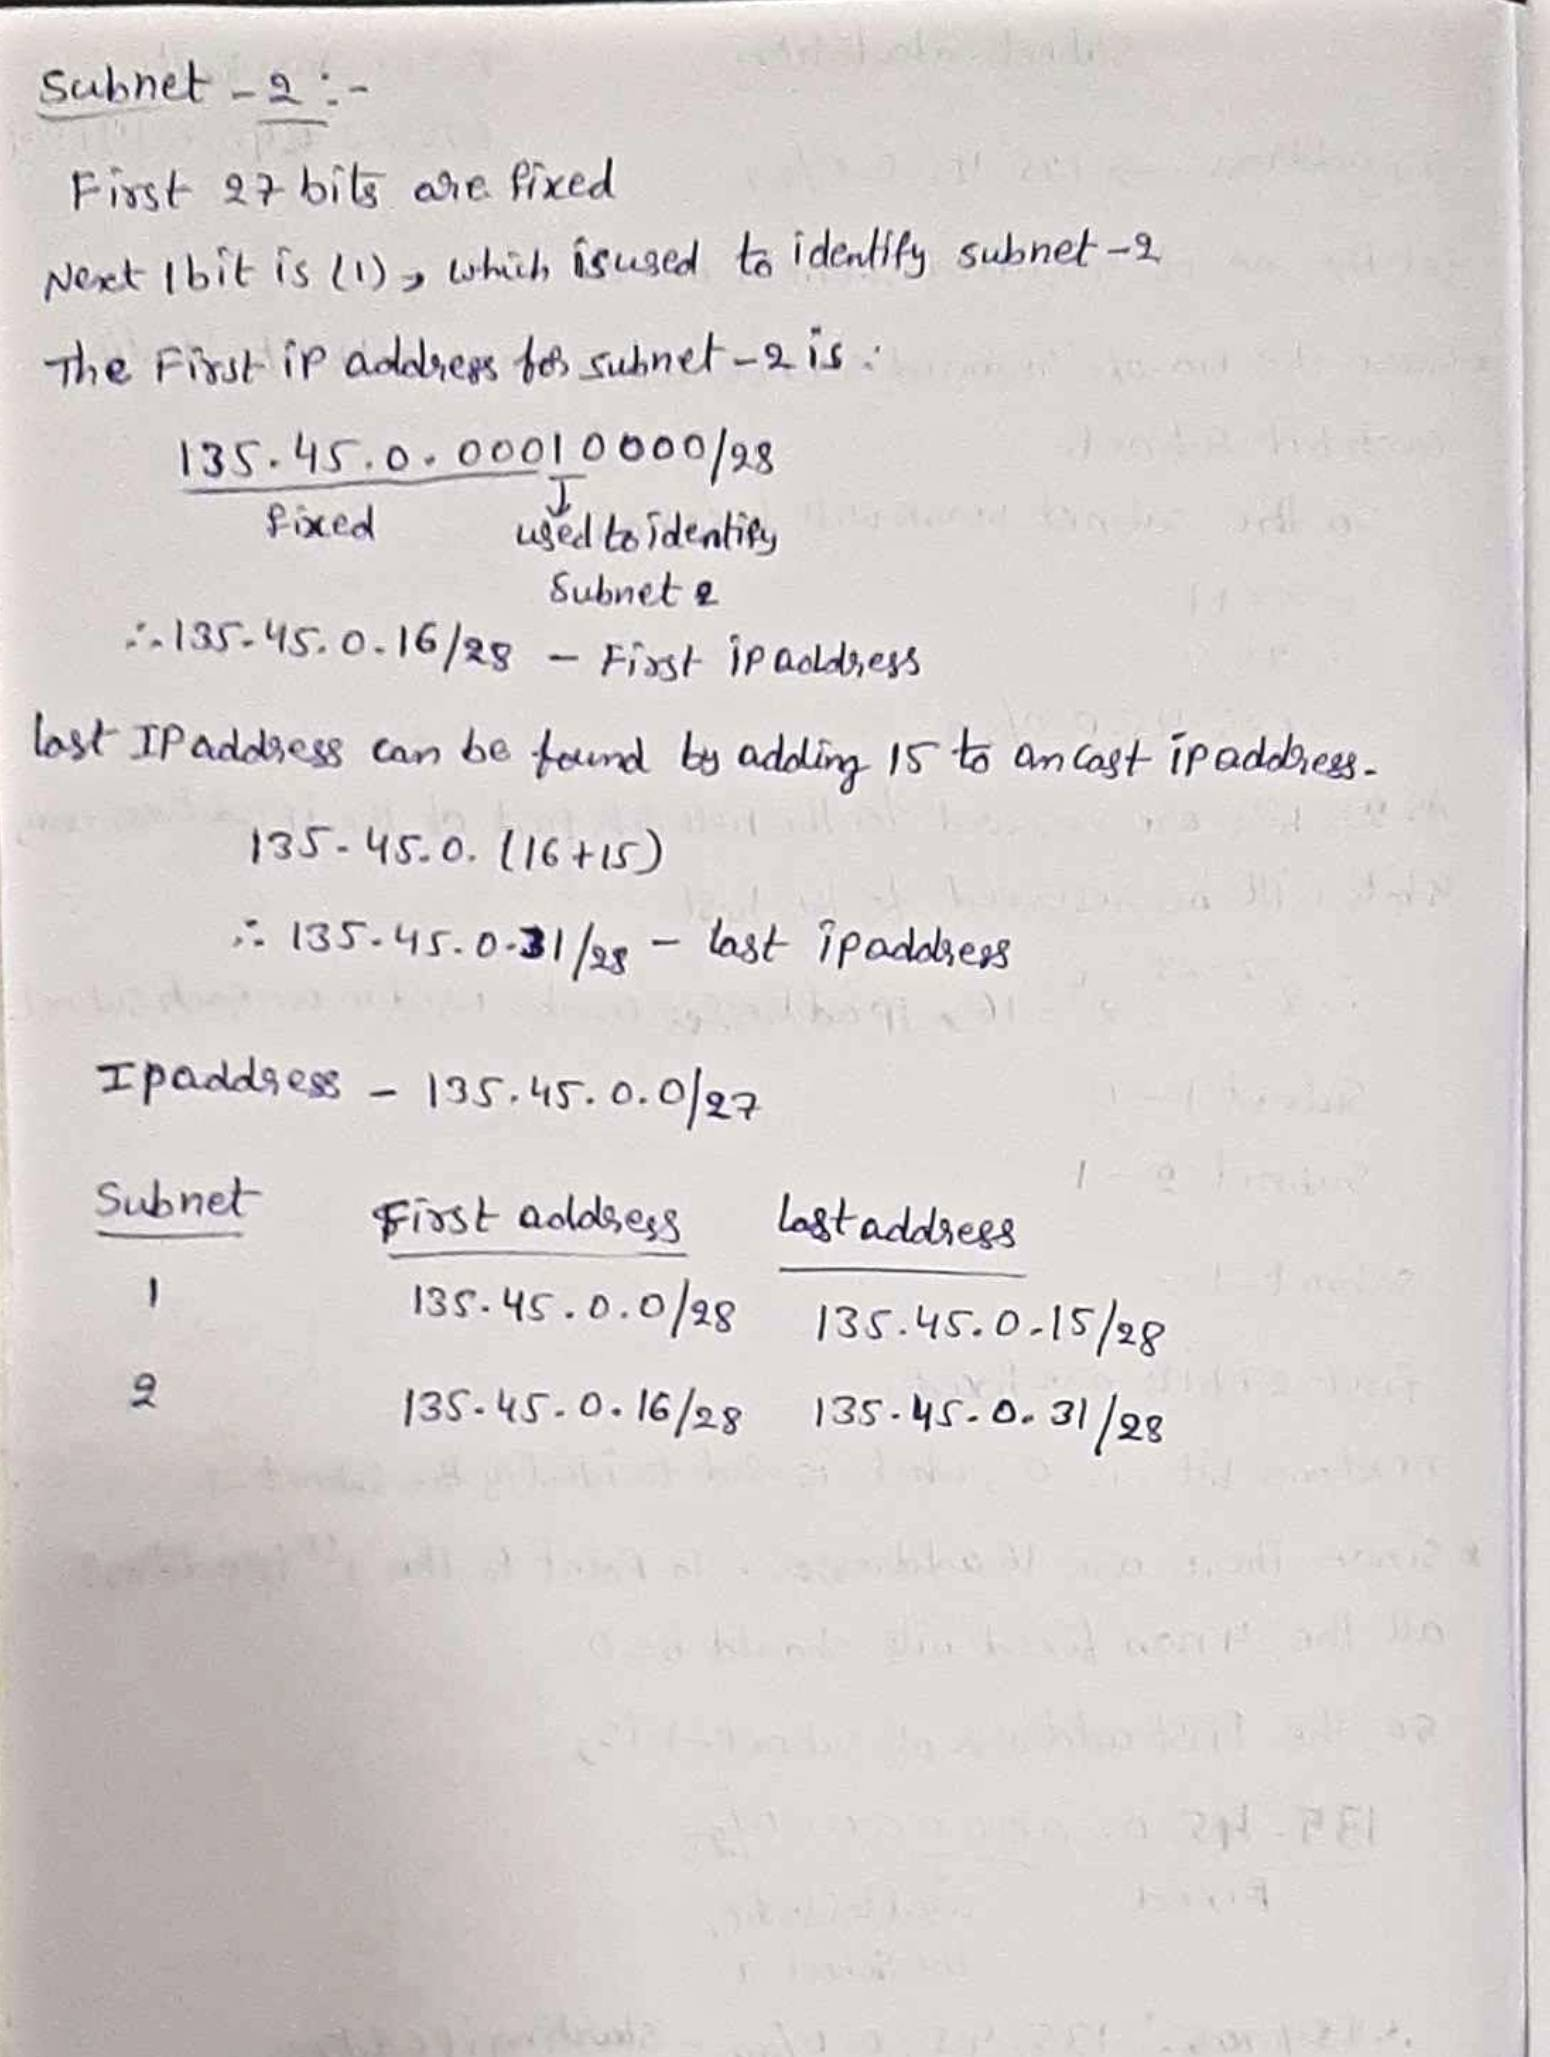 Subnet - 2 :-
First 27 bits are fixed
Next 1 bit is (1), which is used to identify subnet-2
The First ip address for subnet-2 is:
135.45.0.00010000/28
fixed used to identify
Subnet 2
∴ 135.45.0.16/28 - First ip address
last IP address can be found by adding 15 to an cast ip address.
135.45.0.(16+15)
∴ 135.45.0.31/28 - last ip address
Ip address - 135.45.0.0/27
Subnet First address Last address
1 135.45.0.0/28 135.45.0.15/28
2 135.45.0.16/28 135.45.0.31/28